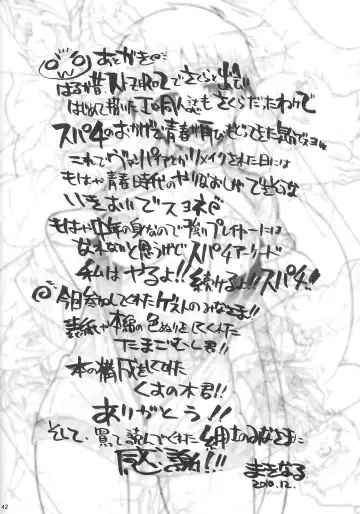 あとがき
はるか昔、ストZEROでさくらと出会
はじめて描いた の同人誌もさくらだったわけで
スパ4のおかげで青春が再び てきた 
これでヴァンパイアとかリメイクされた日には
もはや青春時代のやりなおしみ
いきおいでスヨネ
もはや中年の身なので強いプレイヤーには
なれないと思うけどスパ4アーケード
私はやるよ!! 続けるよ!! スパ4!!
今回参加してくれたゲストのみなさま!!
表紙や本編の色ぬりをしてくれた
たまごむし君!!
本の構成をしてくれた
くすの木君!!
ありがとう!!
そして、買って読んでくれた紳士のみなさまに
感謝!!!
まさなる
2010.12.
42